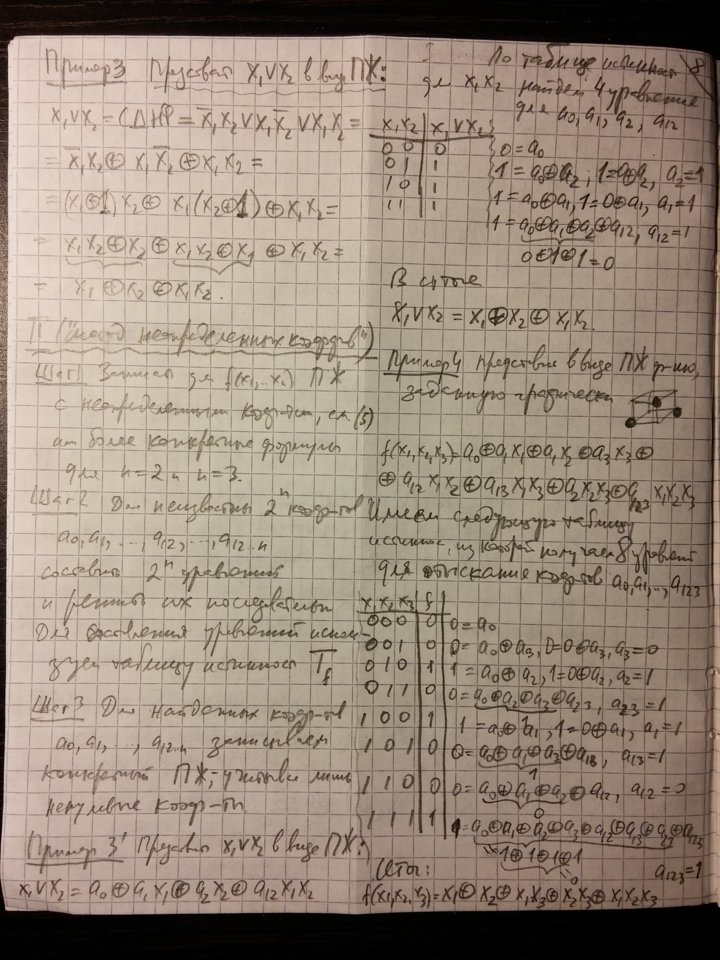 Пример 3 Представить x₁∨x₂ в виде ПЖ:
x₁∨x₂ = СДНФ = x̅₁x₂∨x₁x̅₂∨x₁x₂ =
= x̅₁x₂⊕x₁x̅₂⊕x₁x₂ =
= (x₁⊕1)x₂⊕x₁(x₂⊕1)⊕x₁x₂ =
= x₁x₂⊕x₂⊕x₁x₂⊕x₁⊕x₁x₂ =
= x₁⊕x₂⊕x₁x₂.
II ("метод неопределенных коэфф-тов")
Шаг 1 Записать для f(x₁,..xₙ) ПЖ
с неопределенными коэф-тами, см. (5)
или более конкретные формулы
для n=2 и n=3.
Шаг 2 Для неизвестных 2ⁿ коэф-тов
a₀,a₁,...,a₁₂,...,a₁₂..ₙ
составить 2ⁿ уравнений
и решить их последовательно
Для составления уравнений исполь-
зуем таблицу истинност T_f
Шаг 3 Для найденных коэф-тов
a₀,a₁,...,a₁₂..ₙ записываем
конкретный ПЖ, учитывая лишь
ненулевые коэф-ты.
Пример 3' Представить x₁∨x₂ в виде ПЖ:
x₁∨x₂ = a₀⊕a₁x₁⊕a₂x₂⊕a₁₂x₁x₂
8
По таблице истинност
для x₁x₂ найдем 4 уравнение
для a₀,a₁,a₂,a₁₂
x₁x₂ x₁∨x₂
0 0 0 0=a₀
0 1 1 1=a₀⊕a₂, 1=0⊕a₂, a₂=1
1 0 1 1=a₀⊕a₁, 1=0⊕a₁, a₁=1
1 1 1 1=a₀⊕a₁⊕a₂⊕a₁₂, a₁₂=1
0⊕1⊕1=0
В итоге
x₁∨x₂ = x₁⊕x₂⊕x₁x₂.
Пример 4 Представить в виде ПЖ ф-ию,
заданную графически
f(x₁,x₂,x₃)=a₀⊕a₁x₁⊕a₁x₂⊕a₃x₃⊕
⊕a₁₂x₁x₂⊕a₁₃x₁x₃⊕a₂x₂x₃⊕a₁₂₃x₁x₂x₃
Имеем следующую таблицу
истиннос, из которой получаем 8 уравнений
для отыскание коэф-тов a₀,a₁,..,a₁₂₃
x₁x₂x₃ f
0 0 0 0 0=a₀
0 0 1 0 0=a₀⊕a₃, 0=0⊕a₃, a₃=0
0 1 0 1 1=a₀⊕a₂, 1=0⊕a₂, a₂=1
0 1 1 0 0=a₀⊕a₂⊕a₃⊕a₂₃, a₂₃=1
1 0 0 1 1=a₀⊕a₁, 1=0⊕a₁, a₁=1
1 0 1 0 0=a₀⊕a₁⊕a₃⊕a₁₃, a₁₃=1
1
1 1 0 0 0=a₀⊕a₁⊕a₂⊕a₁₂, a₁₂=0
0
1 1 1 1 1=a₀⊕a₁⊕a₂⊕a₃⊕a₁₂⊕a₁₃⊕a₂₃⊕a₁₂₃
1⊕1⊕1⊕1
0
a₁₂₃=1
Итог:
f(x₁,x₂,x₃)=x₁⊕x₂⊕x₁x₃⊕x₂x₃⊕x₁x₂x₃